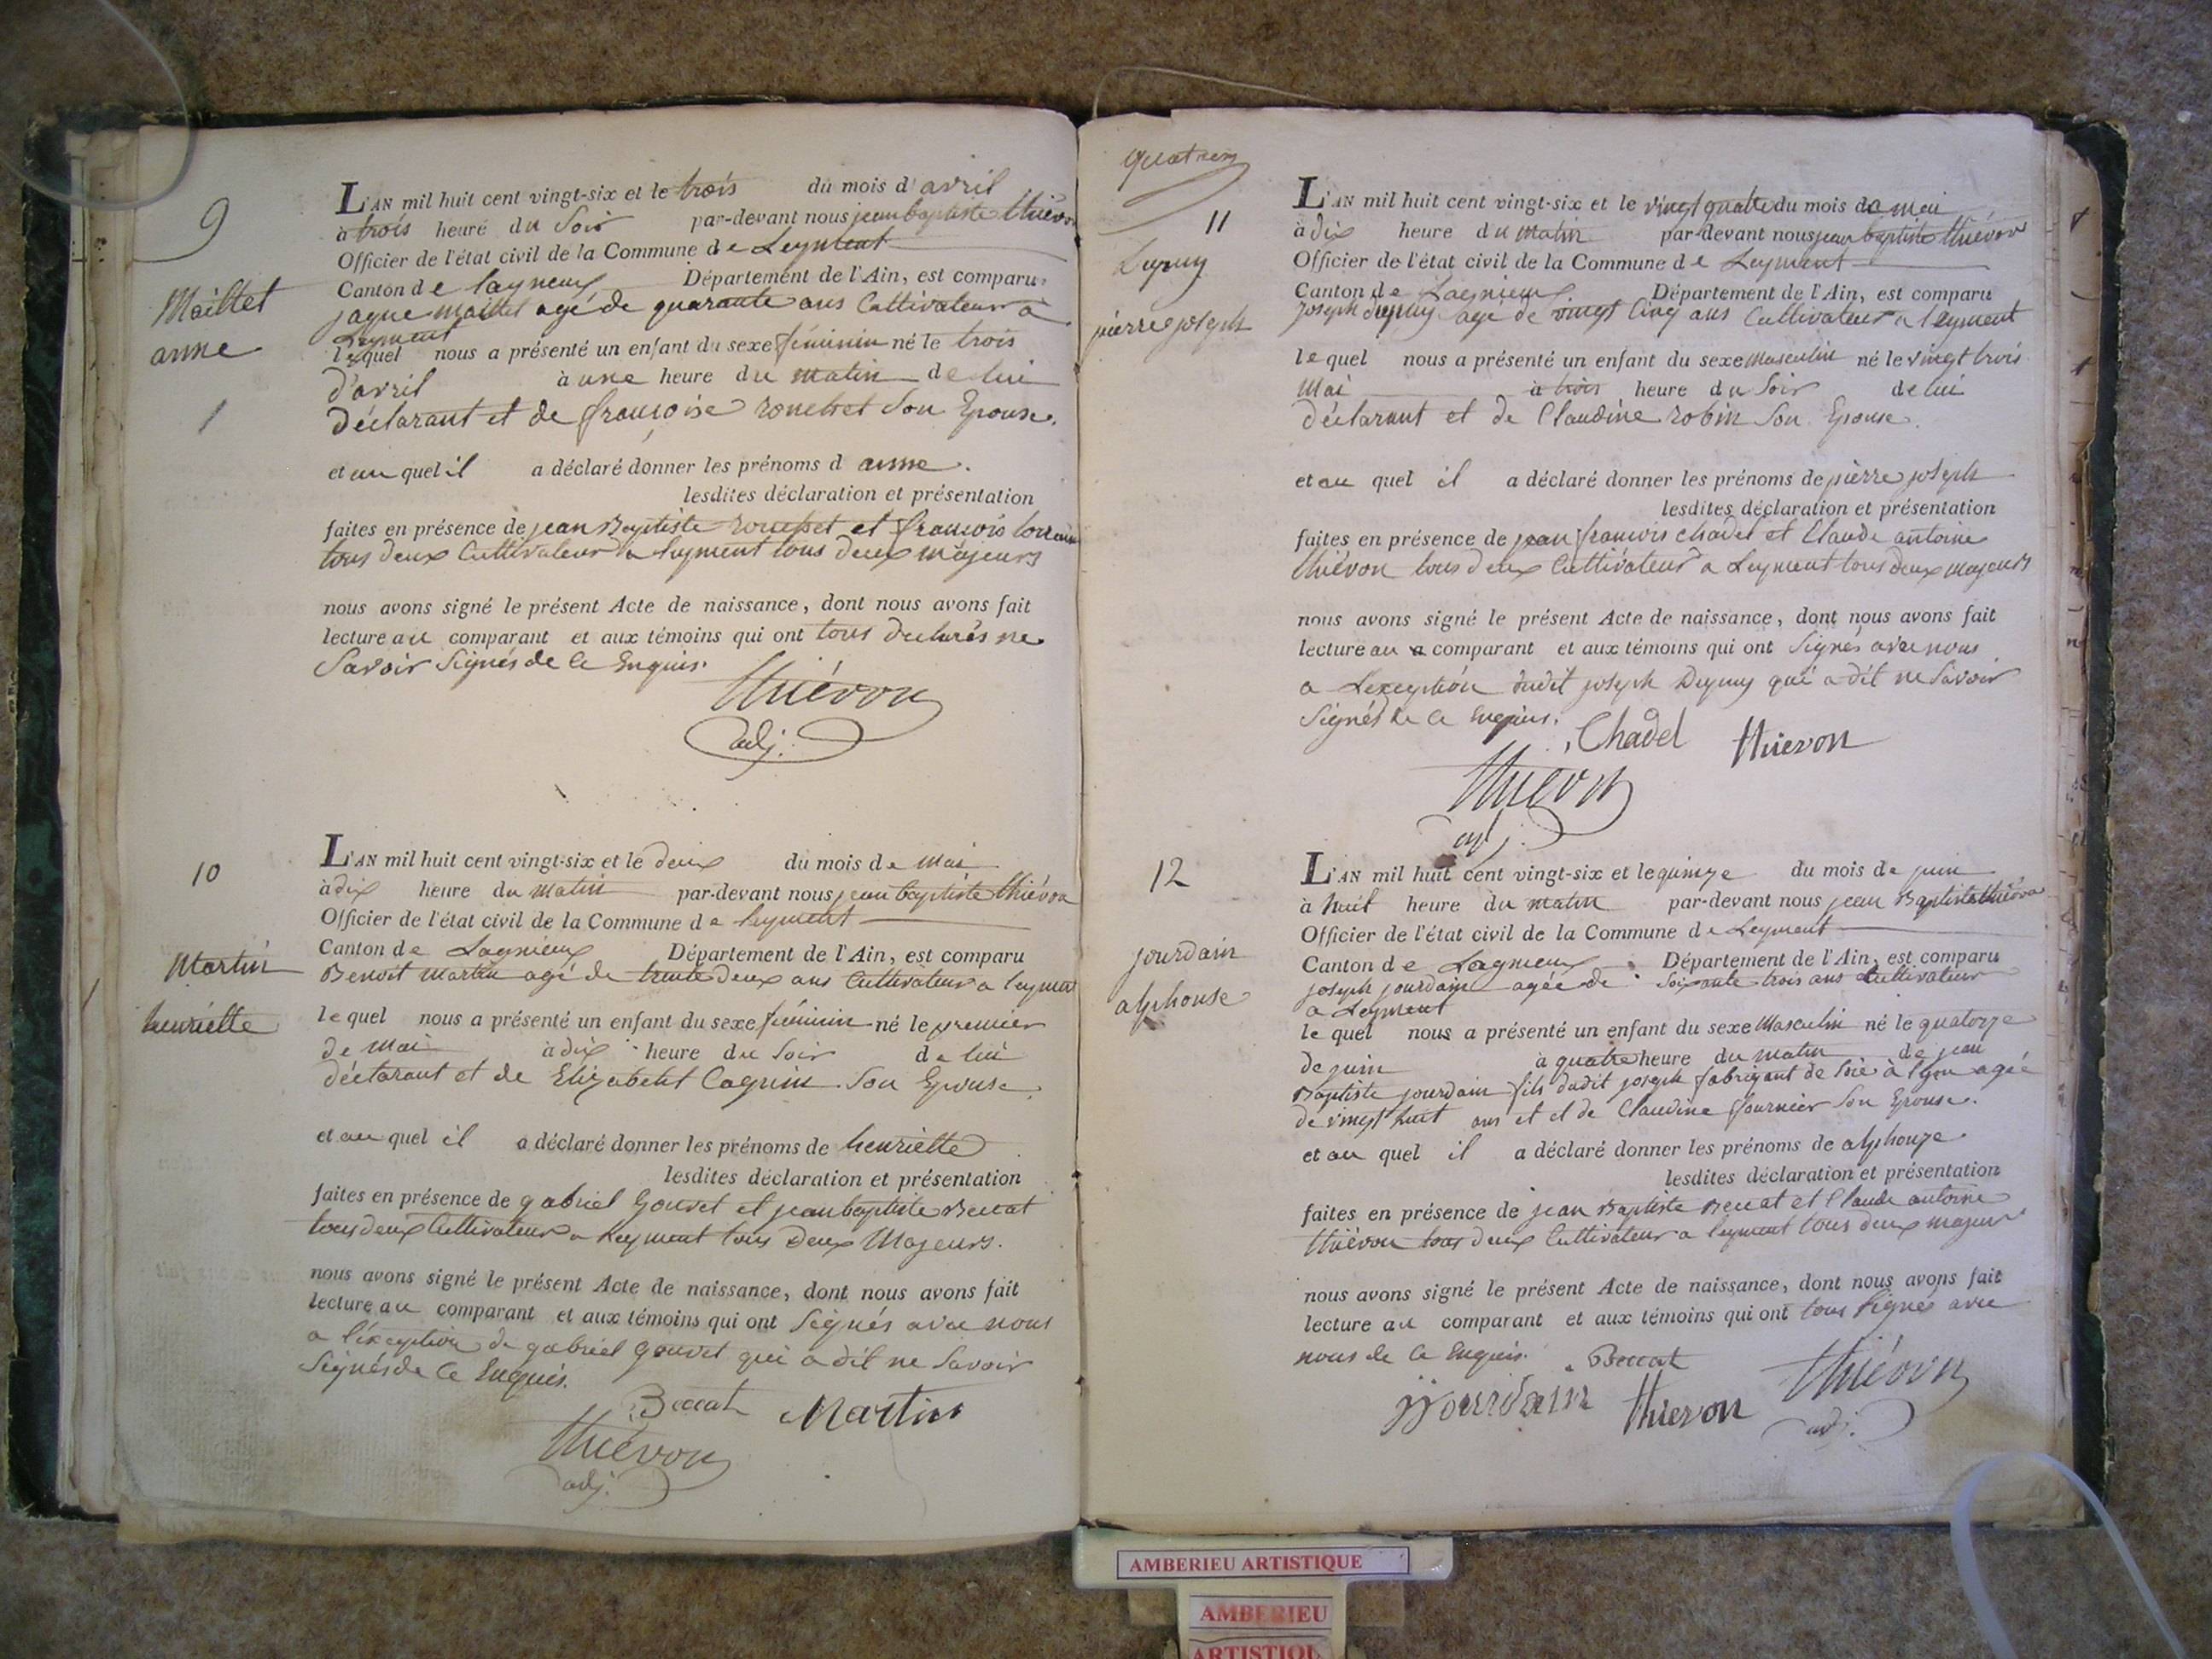 9
Maillet
anne
L'AN mil huit cent vingt-six et le trois du mois d'avril
à trois heure du Soir par-devant nous jean baptiste thiévon
Officier de l'état civil de la Commune de Leyment
Canton de lagneux Département de l'Ain, est comparu
jaque maillet agé de quarante ans Cultivateur a
Leyment
lequel nous a présenté un enfant du sexe féminin né le trois
d'avril à une heure du matin de lui
déclarant et de françoise Son Epouse.
et au quel il a déclaré donner les prénoms d anne.
lesdites déclaration et présentation
faites en présence de jean Baptiste et françois
tous deux Cultivateur a leyment tous deux majeurs
nous avons signé le présent Acte de naissance, dont nous avons fait
lecture au comparant et aux témoins qui ont tous declarés ne
Savoir Signés de Ce Enquis.
thiévon
adj.
10
Martin
henriette
L'AN mil huit cent vingt-six et le deux du mois de Mai
à dix heure du matin par-devant nous jean baptiste thiévon
Officier de l'état civil de la Commune de leyment
Canton de Lagnieux Département de l'Ain, est comparu
Benoit martin agé de trente deux ans Cultivateur a leyment
lequel nous a présenté un enfant du sexe féminin né le premier
de Mai à dix heure du Soir de lui
déclarant et de Elizabeth Cagnin Son Epouse.
et au quel il a déclaré donner les prénoms de henriette
lesdites déclaration et présentation
faites en présence de gabriel Gouvet et jean baptiste Beccat
tous deux Cultivateur a Leyment tous Deux Majeurs.
nous avons signé le présent Acte de naissance, dont nous avons fait
lecture au comparant et aux témoins qui ont Signés avec nous
a l'éxception de gabriel gouvet qui a dit ne Savoir
Signés de Ce Enquis.
Beccat Martin
thiévon
adj.
quatre
11
Dupuy
pierre joseph
L'AN mil huit cent vingt-six et le vingt quatre du mois de mai
à dix heure du matin par-devant nous jean baptiste thiévon
Officier de l'état civil de la Commune de Leyment
Canton de Lagnieux Département de l'Ain, est comparu
joseph dupuy agé de vingt Cinq ans Cultivateur a leyment
lequel nous a présenté un enfant du sexe masculin né le vingt trois
Mai à trois heure du Soir de lui
déclarant et de Claudine robin Son Epouse.
et au quel il a déclaré donner les prénoms de pierre joseph
lesdites déclaration et présentation
faites en présence de jean françois chadel et Claude antoine
thiévon tous deux Cultivateur a Leyment tous deux majeurs
nous avons signé le présent Acte de naissance, dont nous avons fait
lecture au comparant et aux témoins qui ont Signés avec nous
a Lexception dudit joseph Dupuy qui a dit ne Savoir
Signés de Ce Enquis.
Chadel thievon
thiévon
adj.
12
jourdain
alphonse
L'AN mil huit cent vingt-six et le quinze du mois de juin
à huit heure du matin par-devant nous jean Baptiste thiévon
Officier de l'état civil de la Commune de Leyment
Canton de Lagnieux Département de l'Ain, est comparu
joseph jourdain agée de Soixante trois ans Cultivateur
a Leyment
lequel nous a présenté un enfant du sexe Masculin né le quatorze
de juin à quatre heure du matin de jean
Baptiste jourdain fils dudit joseph fabriquant de Soie à lyon agée
de vingt huit ans et et de Claudine fournier Son Epouse.
et au quel il a déclaré donner les prénoms de alphonze
lesdites déclaration et présentation
faites en présence de jean Baptiste Beccat et Claude antoine
thiévon tous deux Cultivateur a leyment tous deux majeur
nous avons signé le présent Acte de naissance, dont nous avons fait
lecture au comparant et aux témoins qui ont tous Signés avec
nous de Ce Enquis.
Beccat
jjourdain thievon thiévon
adj.
AMBERIEU ARTISTIQUE
AMBERIEU
ARTISTIQU